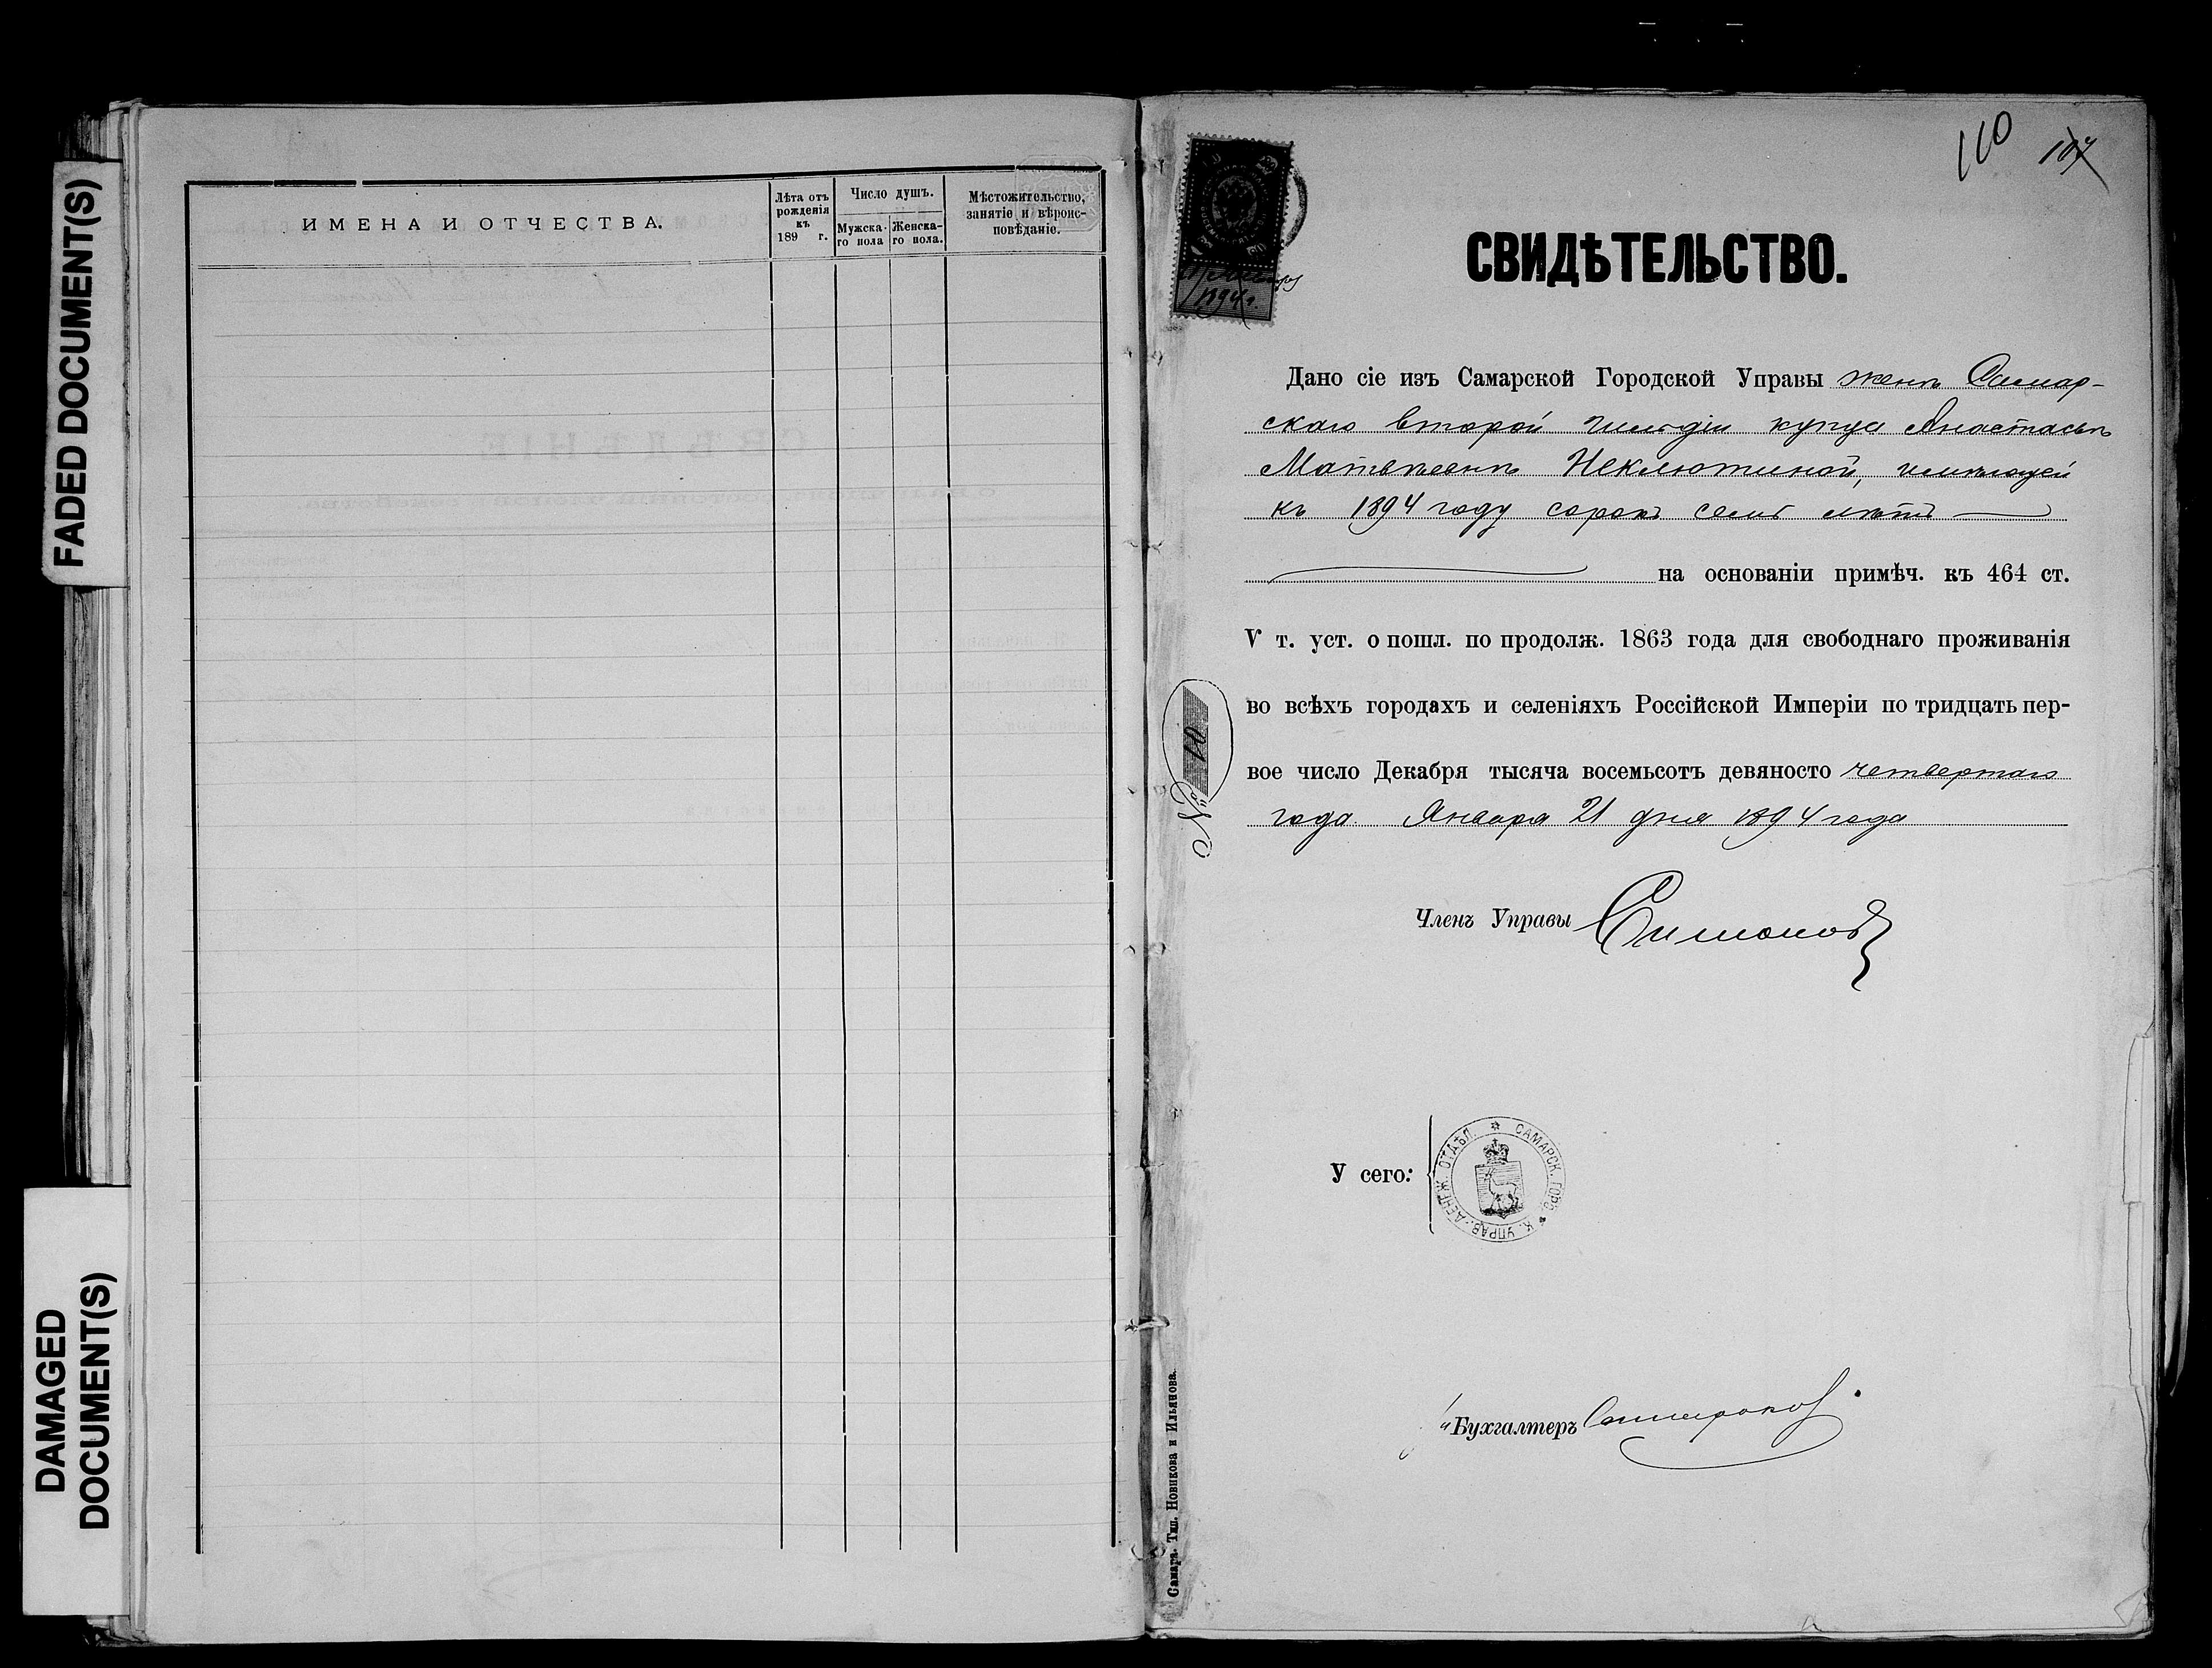 FADED DOCUMENT(S)
DAMAGED
DOCUMENT(S)
ИМЕНА И ОТЧЕСТВА.
Лѣта отъ
рожденія
къ
189 г.
Число душъ.
Мужска-
го пола
Женска-
го пола.
Мѣстожительство,
занятіе и вѣроис-
повѣданіе.
110 107
1894 г.
СВИДѢТЕЛЬСТВО.
Дано сіе изъ Самарской Городской Управы женѣ Самар-
скаго второй гильдіи купца Анастасьѣ
Матвѣевнѣ Неклютиной, имѣющей
къ 1894 году сорокъ семь лѣтъ
на основаніи примѣч. къ 464 ст.
V т. уст. о пошл. по продолж. 1863 года для свободнаго проживанія
во всѣхъ городахъ и селеніяхъ Россійской Имперіи по тридцать пер-
вое число Декабря тысяча восемьсотъ девяносто четвертаго
года. Января 21 дня 1894 года
№ 10
Членъ Управы Симоновъ
У сего:
САМАРСК. ГОРОД. УПРАВ. ДЕНЕЖ. ОТДѢЛ.
Бухгалтеръ
Самара. Тип. Новикова и Ильянова.